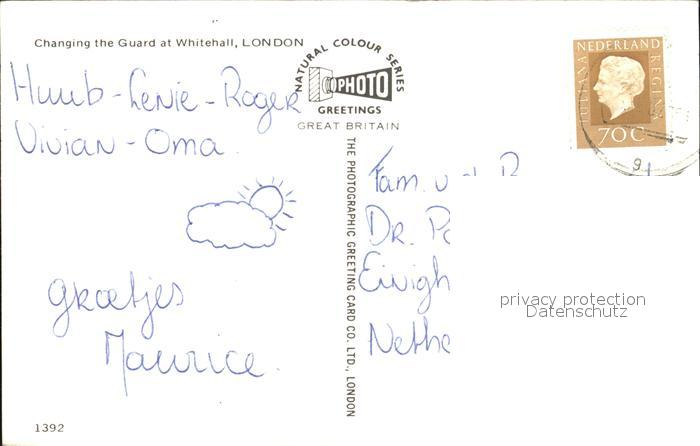 Changing the Guard at Whitehall, LONDON
NATURAL COLOUR SERIES
PHOTO
GREETINGS
GREAT BRITAIN
NEDERLAND
JULIANA REGINA
70 C
9
Huub - Lenie - Roger
Vivian - Oma
Groetjes
Maurice.
THE PHOTOGRAPHIC GREETING CARD CO. LTD., LONDON
Fam. v
DR. Po
Eivigh
Nethe
privacy protection
Datenschutz
1392